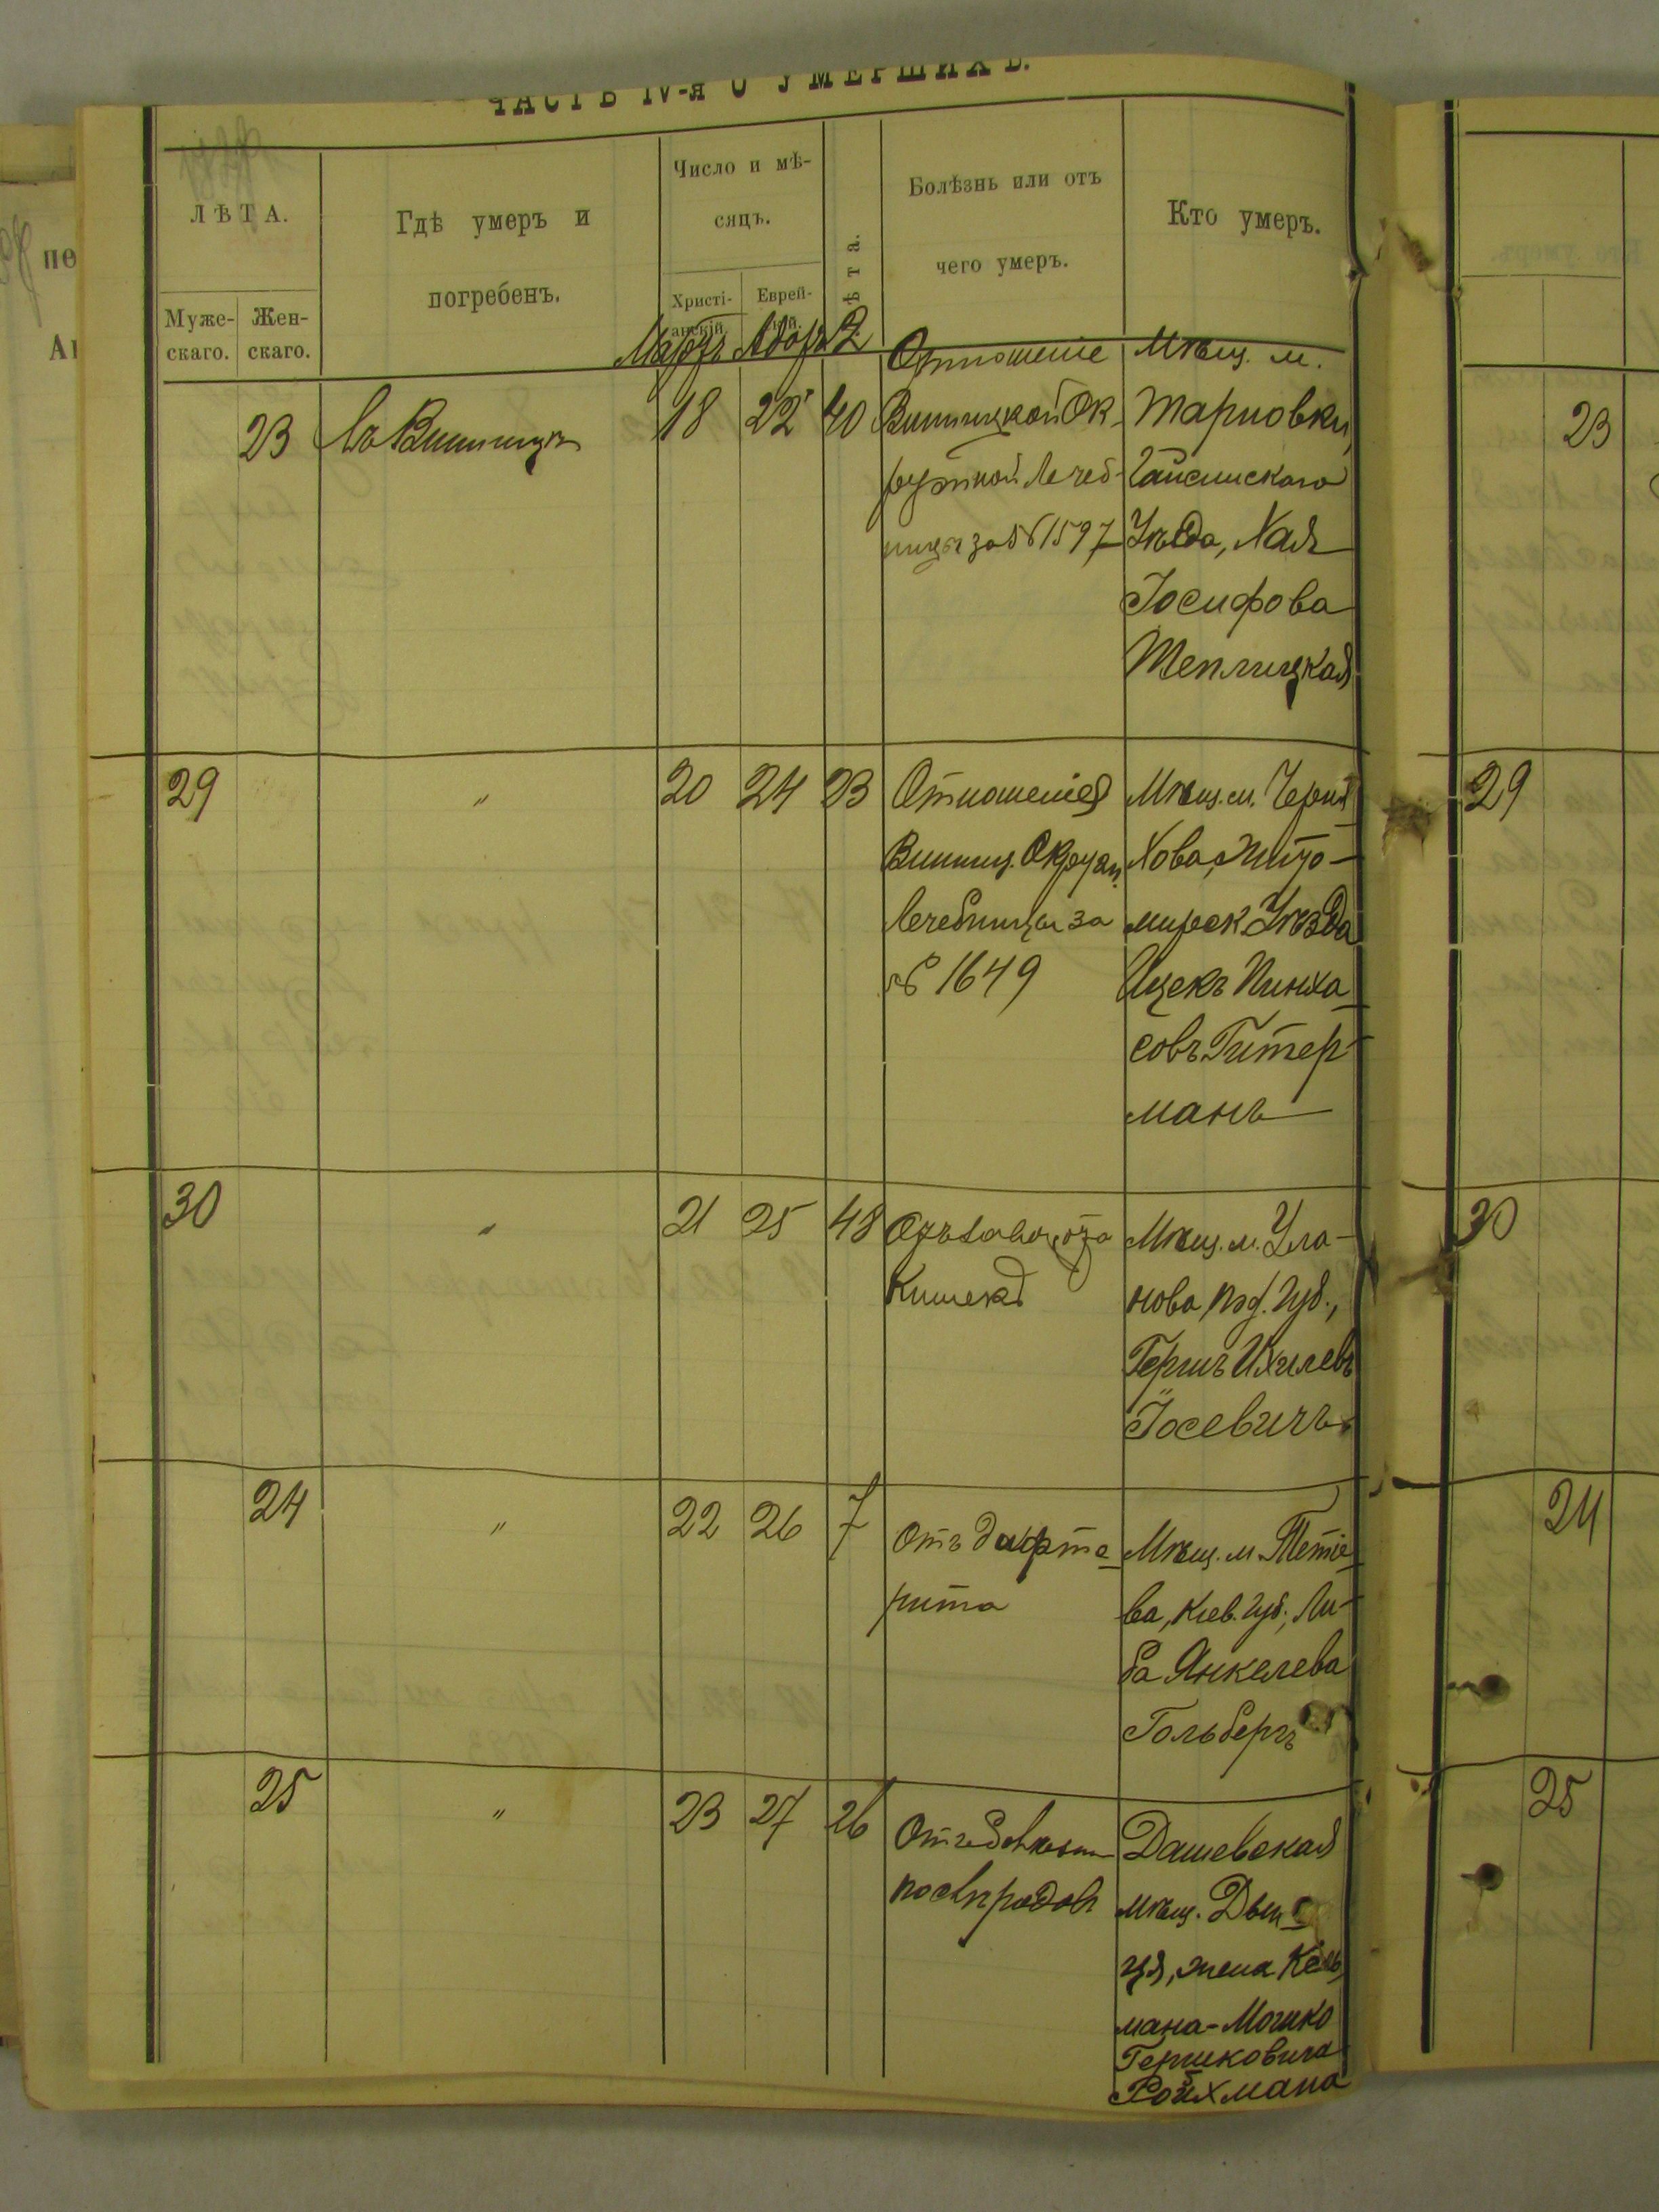 ЧАСТЬ IV-я О УМЕРШИХЪ.
ЛѢТА.
Муже-
скаго.
Жен-
скаго.
Гдѣ умеръ и
погребенъ.
Число и мѣ-
сяцъ.
Христі-
анскій.
Еврей-
скій.
Мартъ Адаръ 2
ѣта.
Болѣзнь или отъ
чего умеръ.
Кто умеръ.
23
Въ Винницѣ
18
22
40
Отношеніе
Винницкой Ок-
ружной Лечеб-
ницы за № 1597
Мѣщ. м.
Тарновки,
Гайсинскаго
Уѣзда, Хая
Іосифова
Теплицкая
29
"
20
24
23
Отношенія
Винниц. Окружн.
Лечебницы за
№ 1649
Мѣщ. м. Черня-
хова, Жито-
мирск. Уѣзда
Ицекъ Пинха-
совъ Гитер-
манъ
30
"
21
25
48
Кишекъ
Мѣщ. м. Ула-
нова, Под. Губ.,
Гершъ Ихилевъ
Іосевичъ
24
"
22
26
7
Отъ дифте-
рита
Мѣщ. м. Тетіе-
ва, Кіев. Губ., Ли-
ба Янкелева
Гольбергъ
25
"
23
27
26
послѣ родовъ
Дашевская
мѣщ. Двей-
ця, жена Кель-
мана-Мошко
Гершковича
Ройхмана
23
29
30
24
25